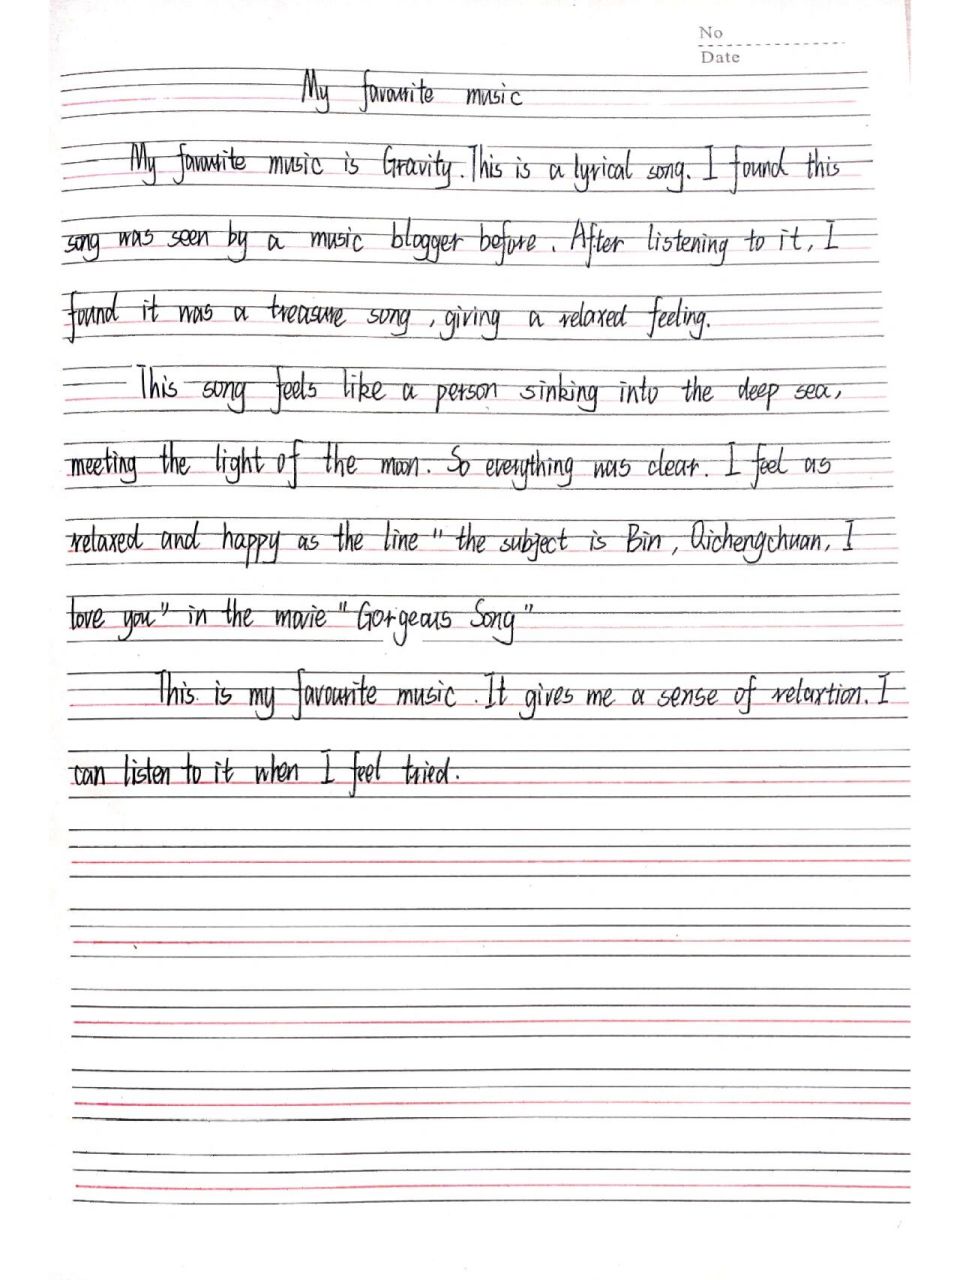 No
Date
My favourite music
My favourite music is Gravity. This is a lyrical song. I found this
song was seen by a music blogger before. After listening to it, I
found it was a treasure song, giving a relaxed feeling.
This song feels like a person sinking into the deep sea,
meeting the light of the moon. So everything was clear. I feel as
relaxed and happy as the line "the subject is Bin, Qichengchuan, I
love you" in the movie "Gorgeous Song"
This is my favourite music. It gives me a sense of relaxtion. I
can listen to it when I feel tried.